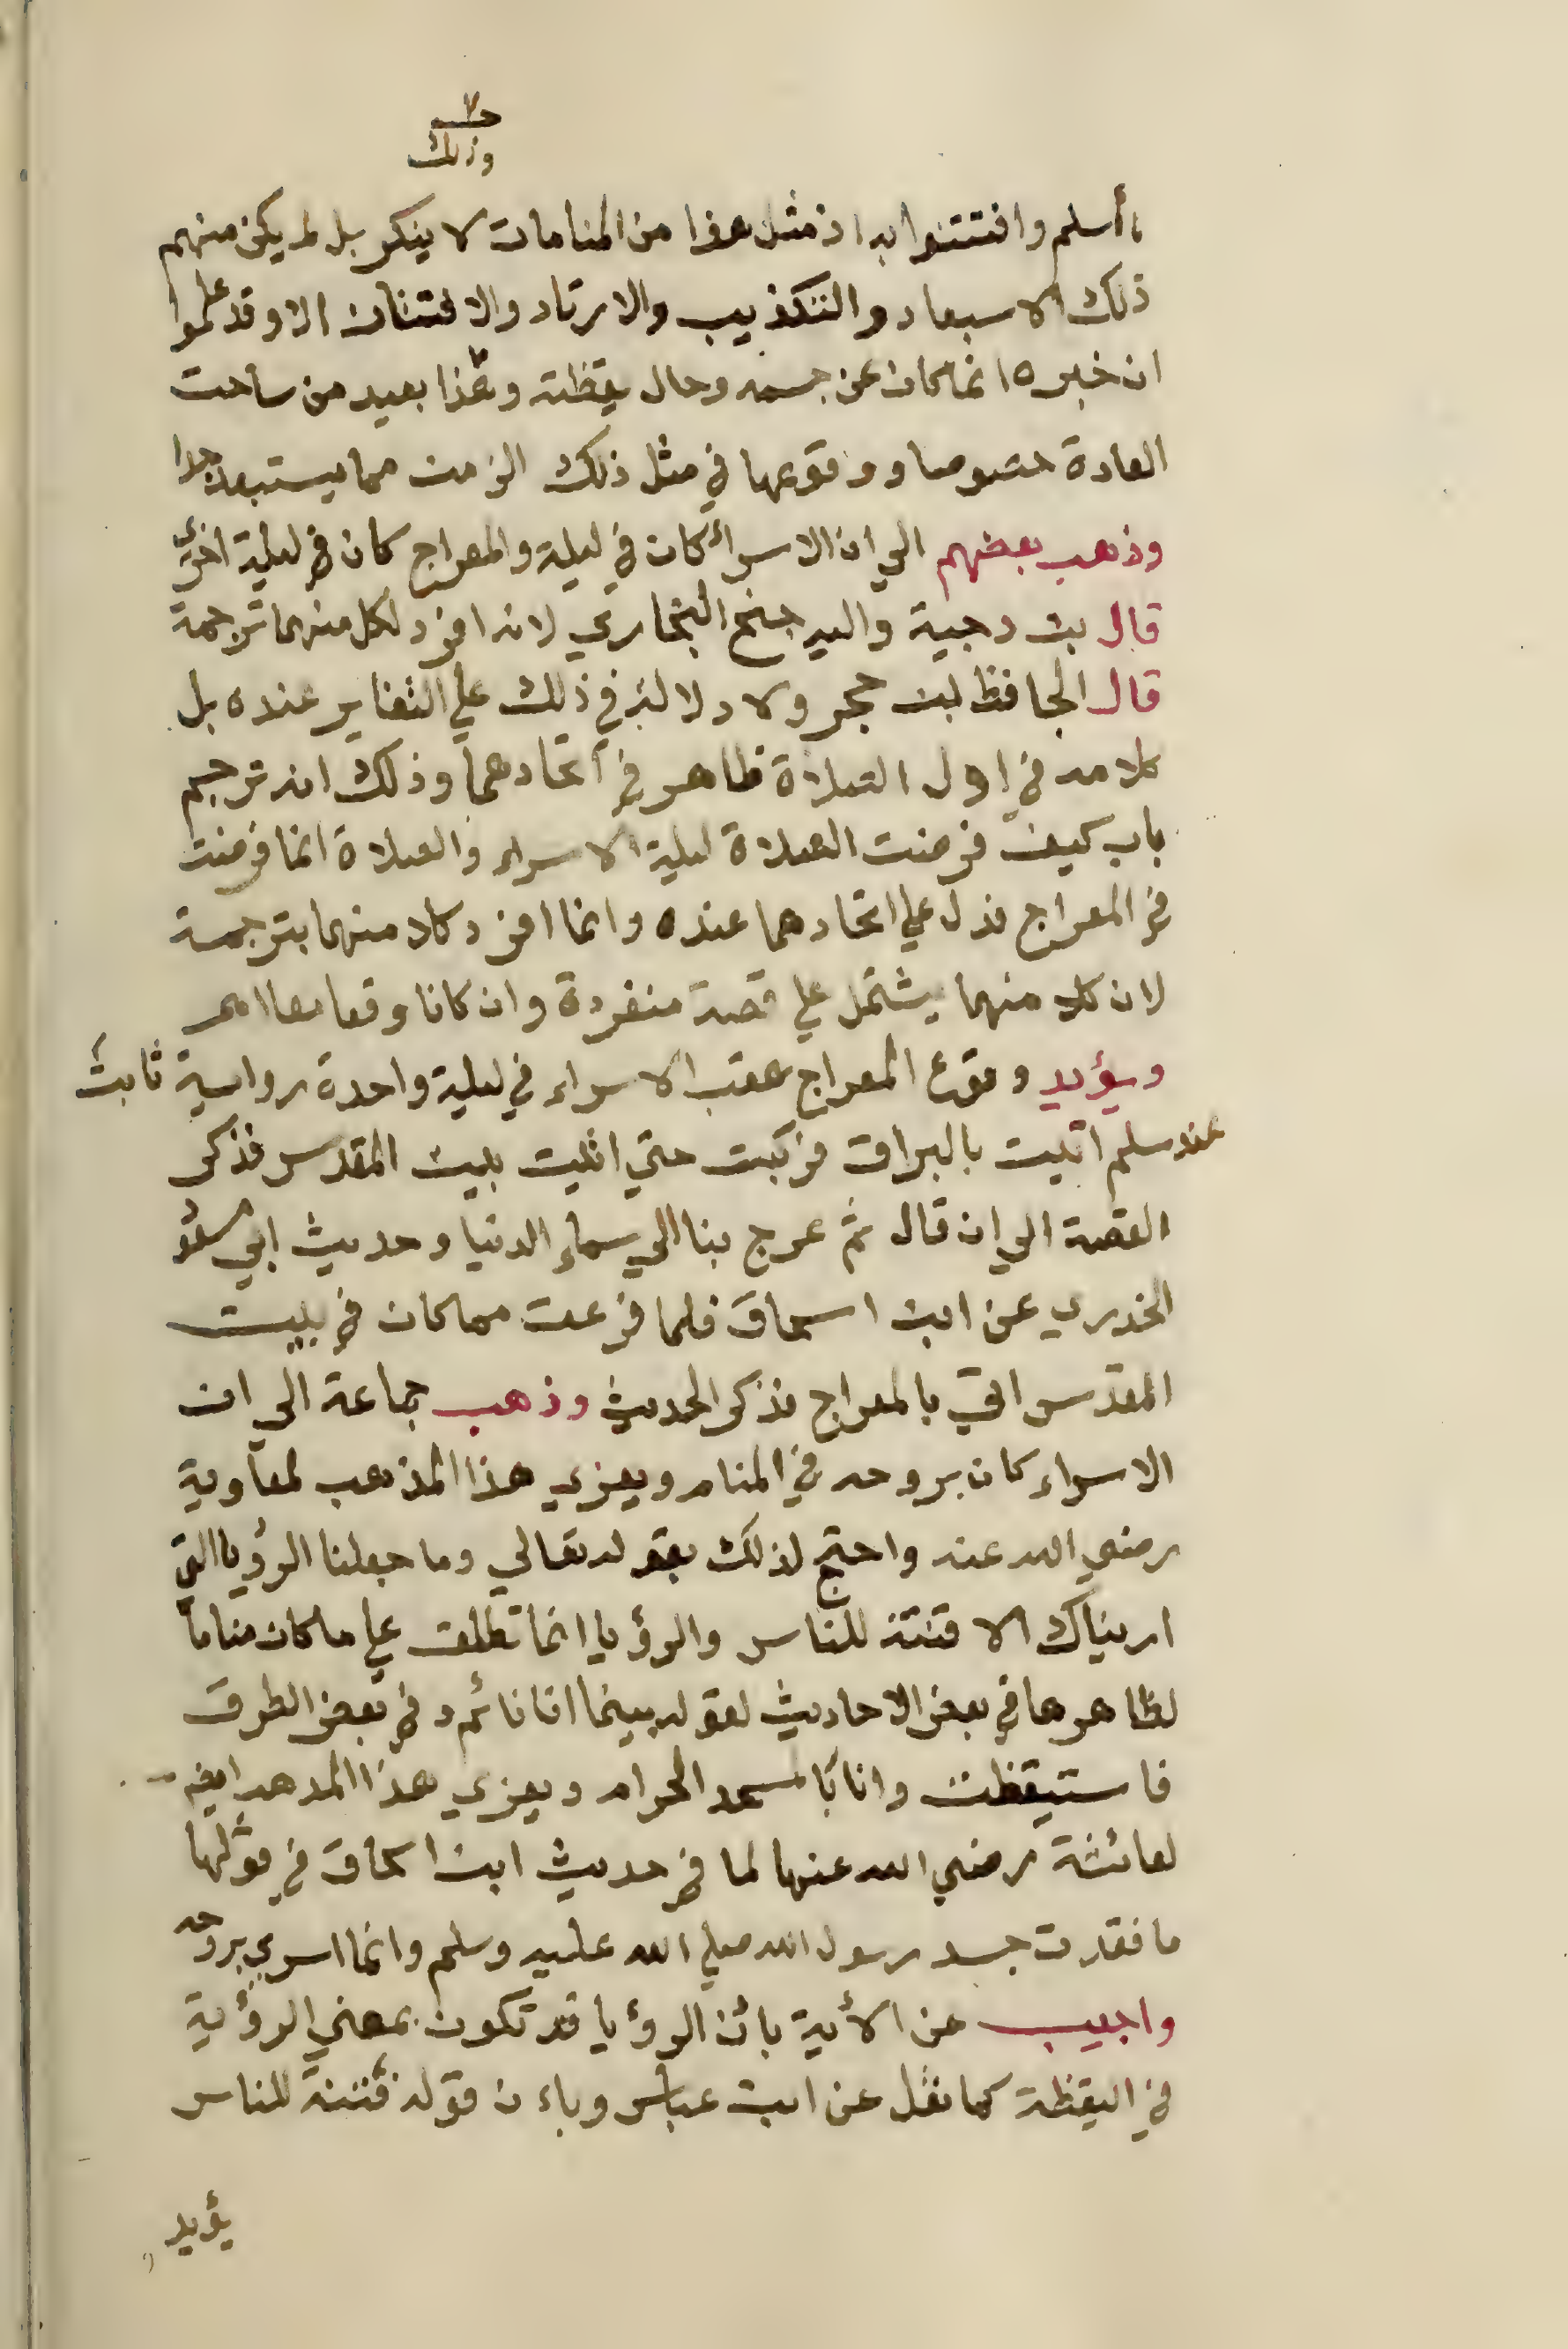 وذلك
أسلم وافتتنوا به اذ مثل هذا من المنامات لا ينكر بل لم يكن منهم
ذلك الاسبعاد والتكذيب والارتاد والافتنان الا وقد علموا
ان خبره انما كان عن جسمه وحال يقظته وهذا بعيد من ساحت
العادة خصوصا ووقوعها في مثل ذلك الزمن مما يستبعد جدا
وذهب بعضهم الي ان الاسرأ كان في ليلة والمعراج كان في ليلة اخرى
قال بن دحية واليه جنح البخاري لانه افرد لكل منهما ترجمة
قال الحافظ ابن حجر ولا دلالة في ذلك علي التغاير عنده بل
كلامه في اول الصلاة ظاهر في اتحادهما وذلك انه ترجم
باب كيف فرضت الصلاة ليلة الاسراء والصلاة انما فرضت
في المعراج فدل علي اتحادهما عنده وانما افرد كلا منهما بترجمة
لان كلا منهما يشتمل علي قصة منفردة وان كانا وقعا معا اهـ
ويؤيد وقوع المعراج عقب الاسراء في ليلة واحدة رواية ثابت
عند مسلم اتيت بالبراق فركبت حتي اتيت بيت المقدس فذكر
القصة الي ان قال ثم عرج بنا الي سماء الدنيا وحديث ابي سعيد
الخدري عن ابن اسحاق فلما فرغت مما كان في بيت
المقدس اتي بالمعراج فذكر الحديث وذهب جماعة الي ان
الاسراء كان بروحه في المنام ويعزي هذا المذهب لمعاوية
رضي الله عنه واحتج لذلك بقوله تعالي وما جعلنا الرؤيا التي
اريناك الا فتنة للناس والرؤيا انما تطلق علي ما كان مناما
لظاهرها في بعض الاحاديث لقوله بينما انا نائم وفي بعض الطرق
فاستيقظت وانا بالمسجد الحرام ويعزي هذا المذهب ايضا
لعائشة رضي الله عنها لما في حديث ابن اسحاق في قولها
ما فقدت جسد رسول الله صلي الله عليه وسلم وانما اسري بروحه
واجيب عن الأية بائن الرؤيا قد تكون بمعني الرؤية
في اليقظة كما نقل عن ابن عباس وباءن قوله فتنة للناس
يؤيد